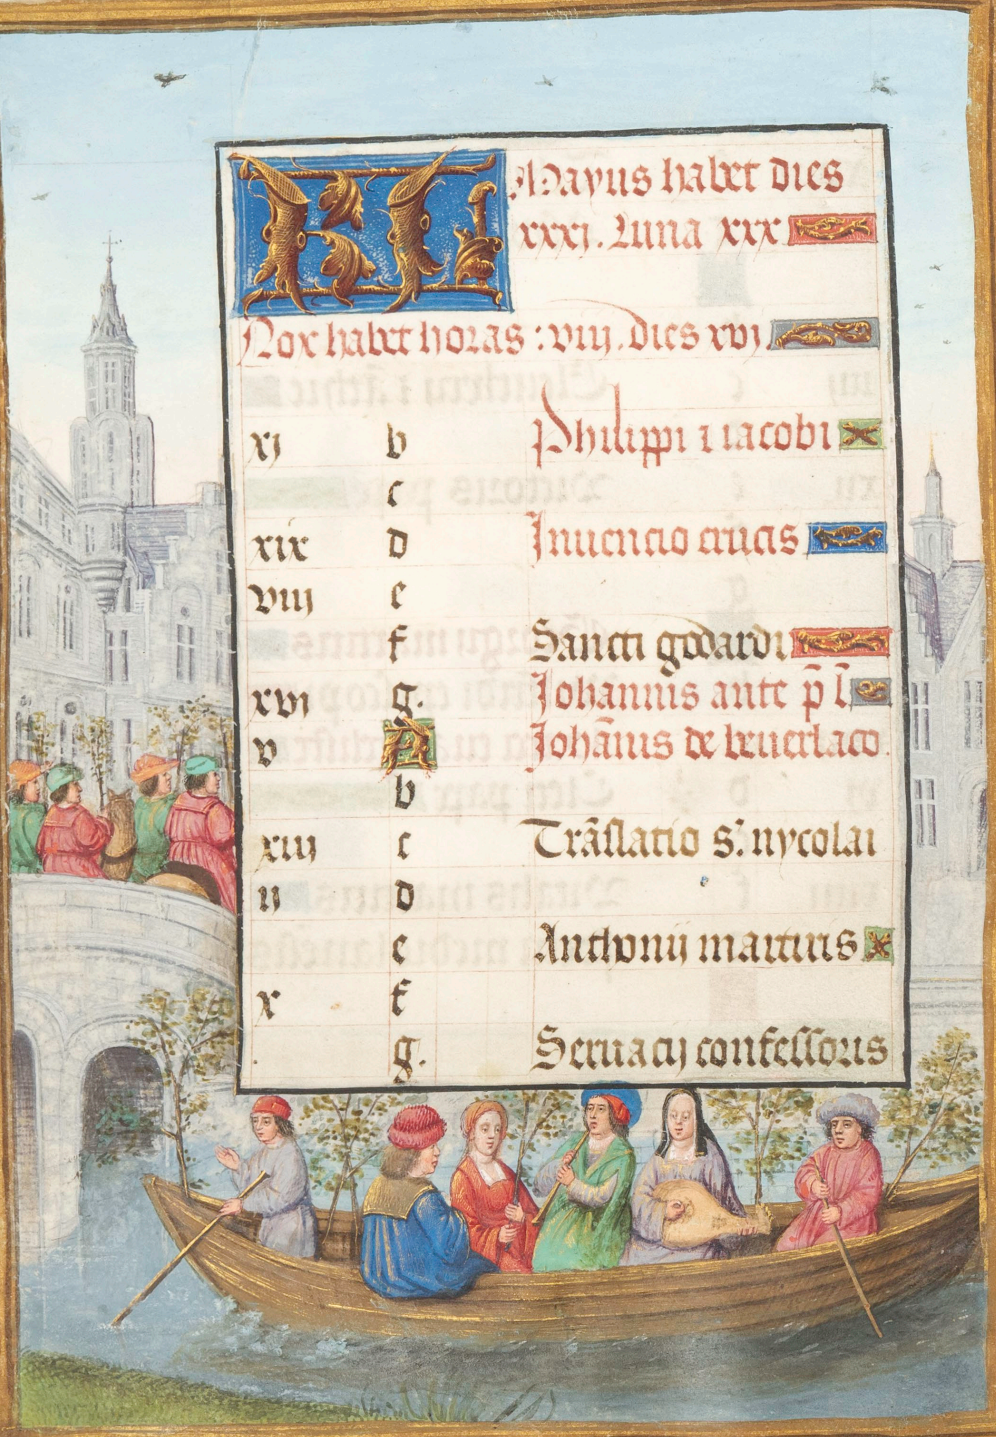 KL Mayus habet dies
xxxj. Luna xxx
Nox habet horas : viij. dies xvj
xj b Philippi i iacobi
c
xix d Inuencio crucis
viij e
f Sancti godardi
xvj g. Johannis ante p̄ l̄
v A Johān̄is de beuerlaco.
b
xiij c Trāslatio s. nycolai
ij d
e Anthonij martiris
x f
g. Seruacij confessoris